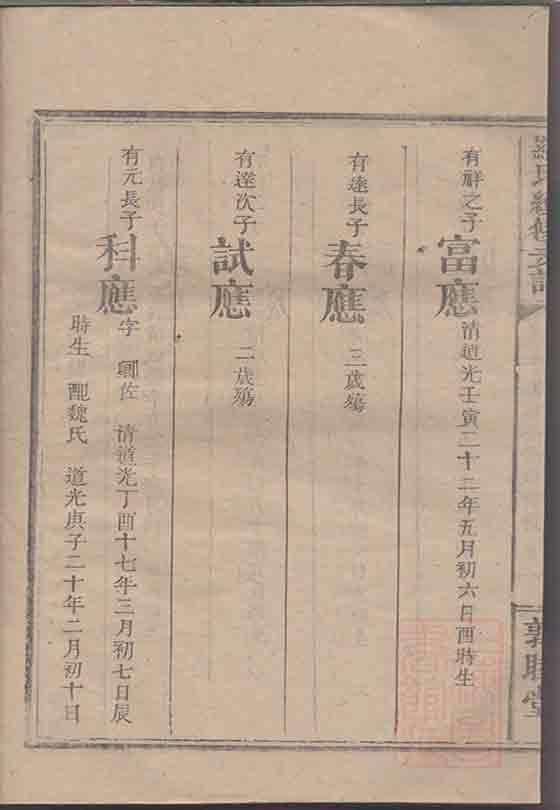 氏續修支譜
敦睦堂
有祥之子 富應 清道光壬寅二十二年五月初六日酉時生
有達長子 春應 三歲殤
有達次子 試應 二歲殤
有元長子 科應 字 卿佐 清道光丁酉十七年三月初七日辰
時生 配魏氏 道光庚子二十年二月初十日